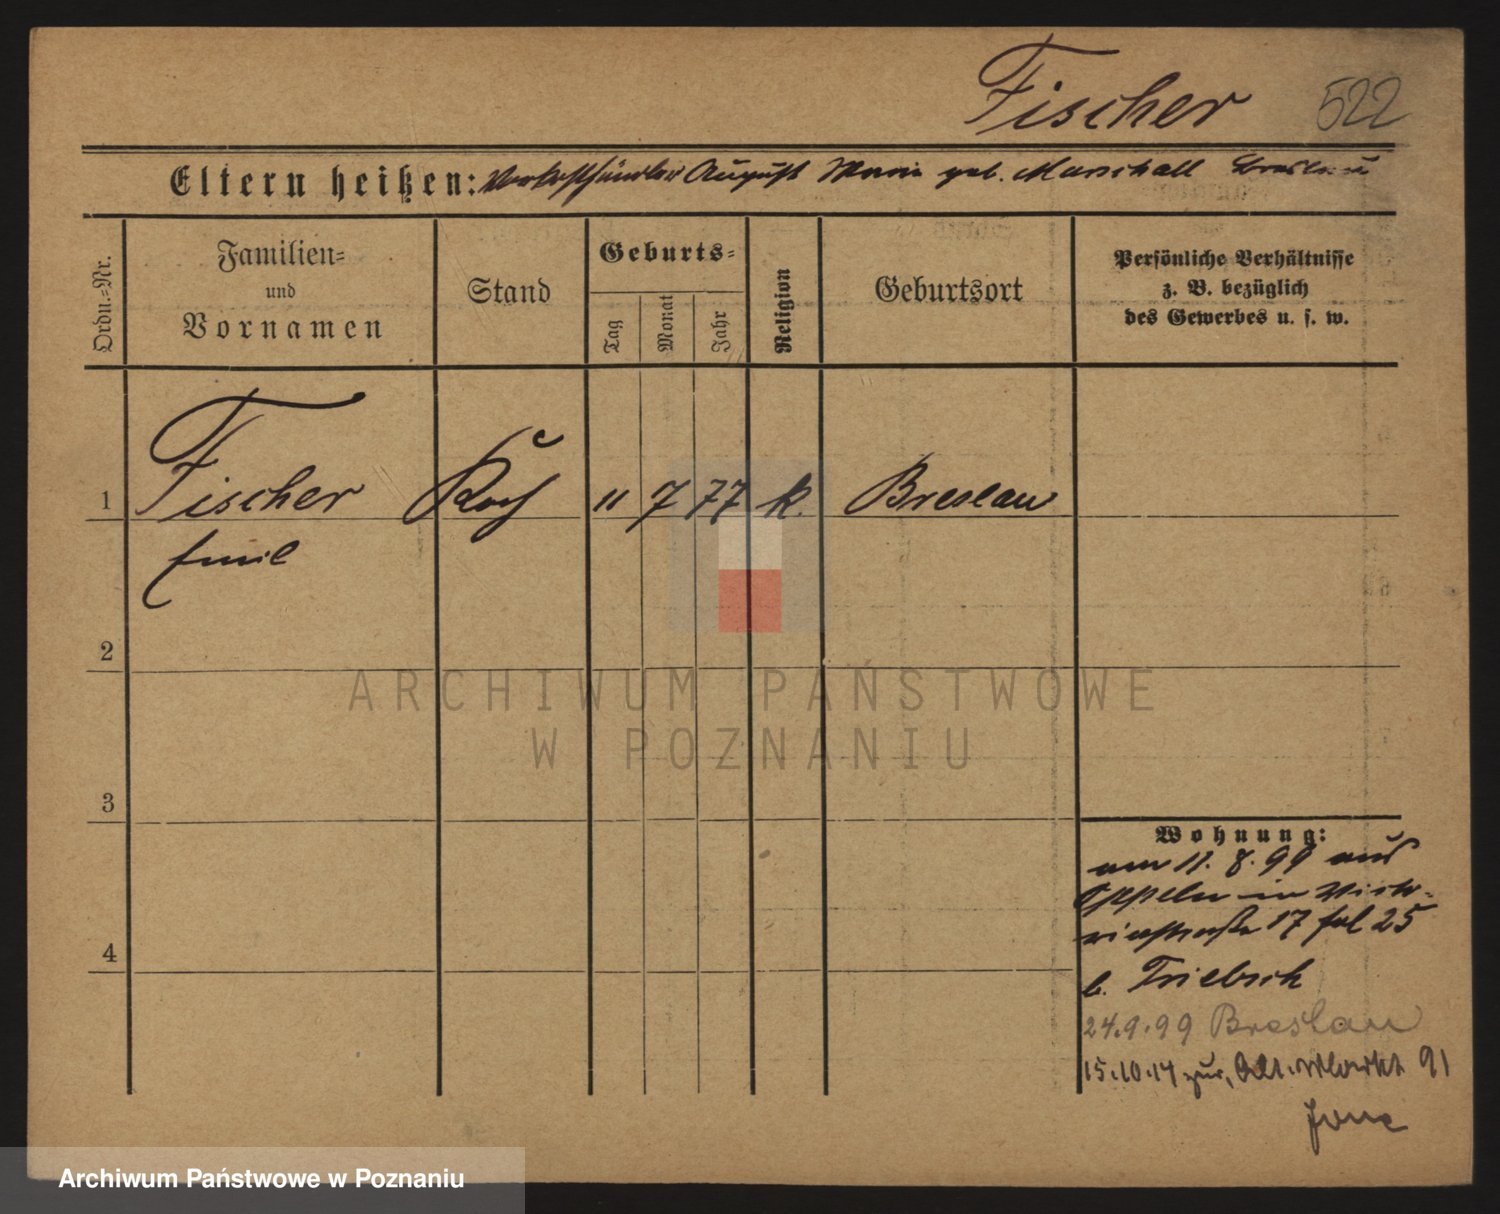 Fischer 522
Eltern heißen: Vorkosthändler August Marie geb. Marschall Breslau
Ordn.-Nr.
Familien-
und
Vornamen
Stand
Geburts-
Tag
Monat
Jahr
Religion
Geburtsort
Persönliche Verhältnisse
z. B. bezüglich
des Gewerbes u. s. w.
1 Fischer Koch 11 7 77 k. Breslau
Emil
2
3
4
Wohnung:
am 11. 8. 99 aus
Oppeln in Victo-
riastraße 17 fol 25
b. Triebsch
24.9.99 Breslau
15.10.14 zur. Alt. Markt 91
ARCHIWUM PAŃSTWOWE
W POZNANIU
Archiwum Państwowe w Poznaniu